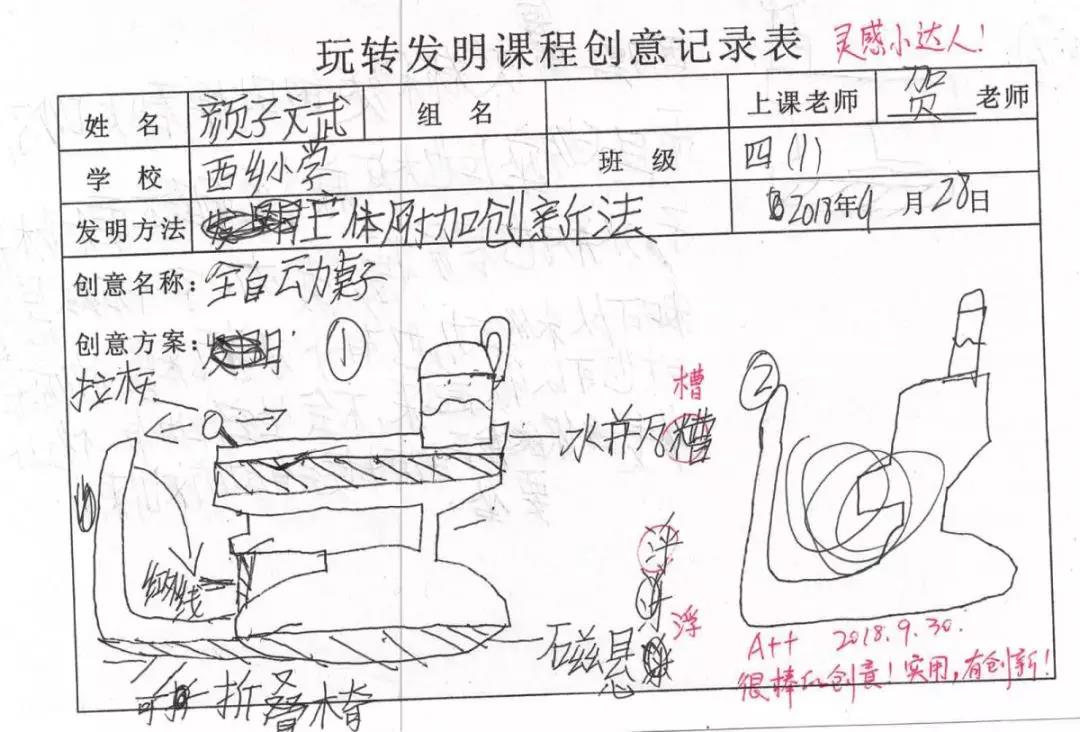 玩转发明课程创意记录表 灵感小达人!
姓 名 颜子文武 组 名 上课老师 贺 老师
学 校 西乡小学 班 级 四(1)
发明方法 主体附加创新法 2018年9月28日
创意名称: 全自动桌子
创意方案: ①
拉杆
槽
水并瓦槽
②
浮
石磁悬
可折折叠木脊
A++ 2018.9.30.
很棒的创意!实用,有创新!